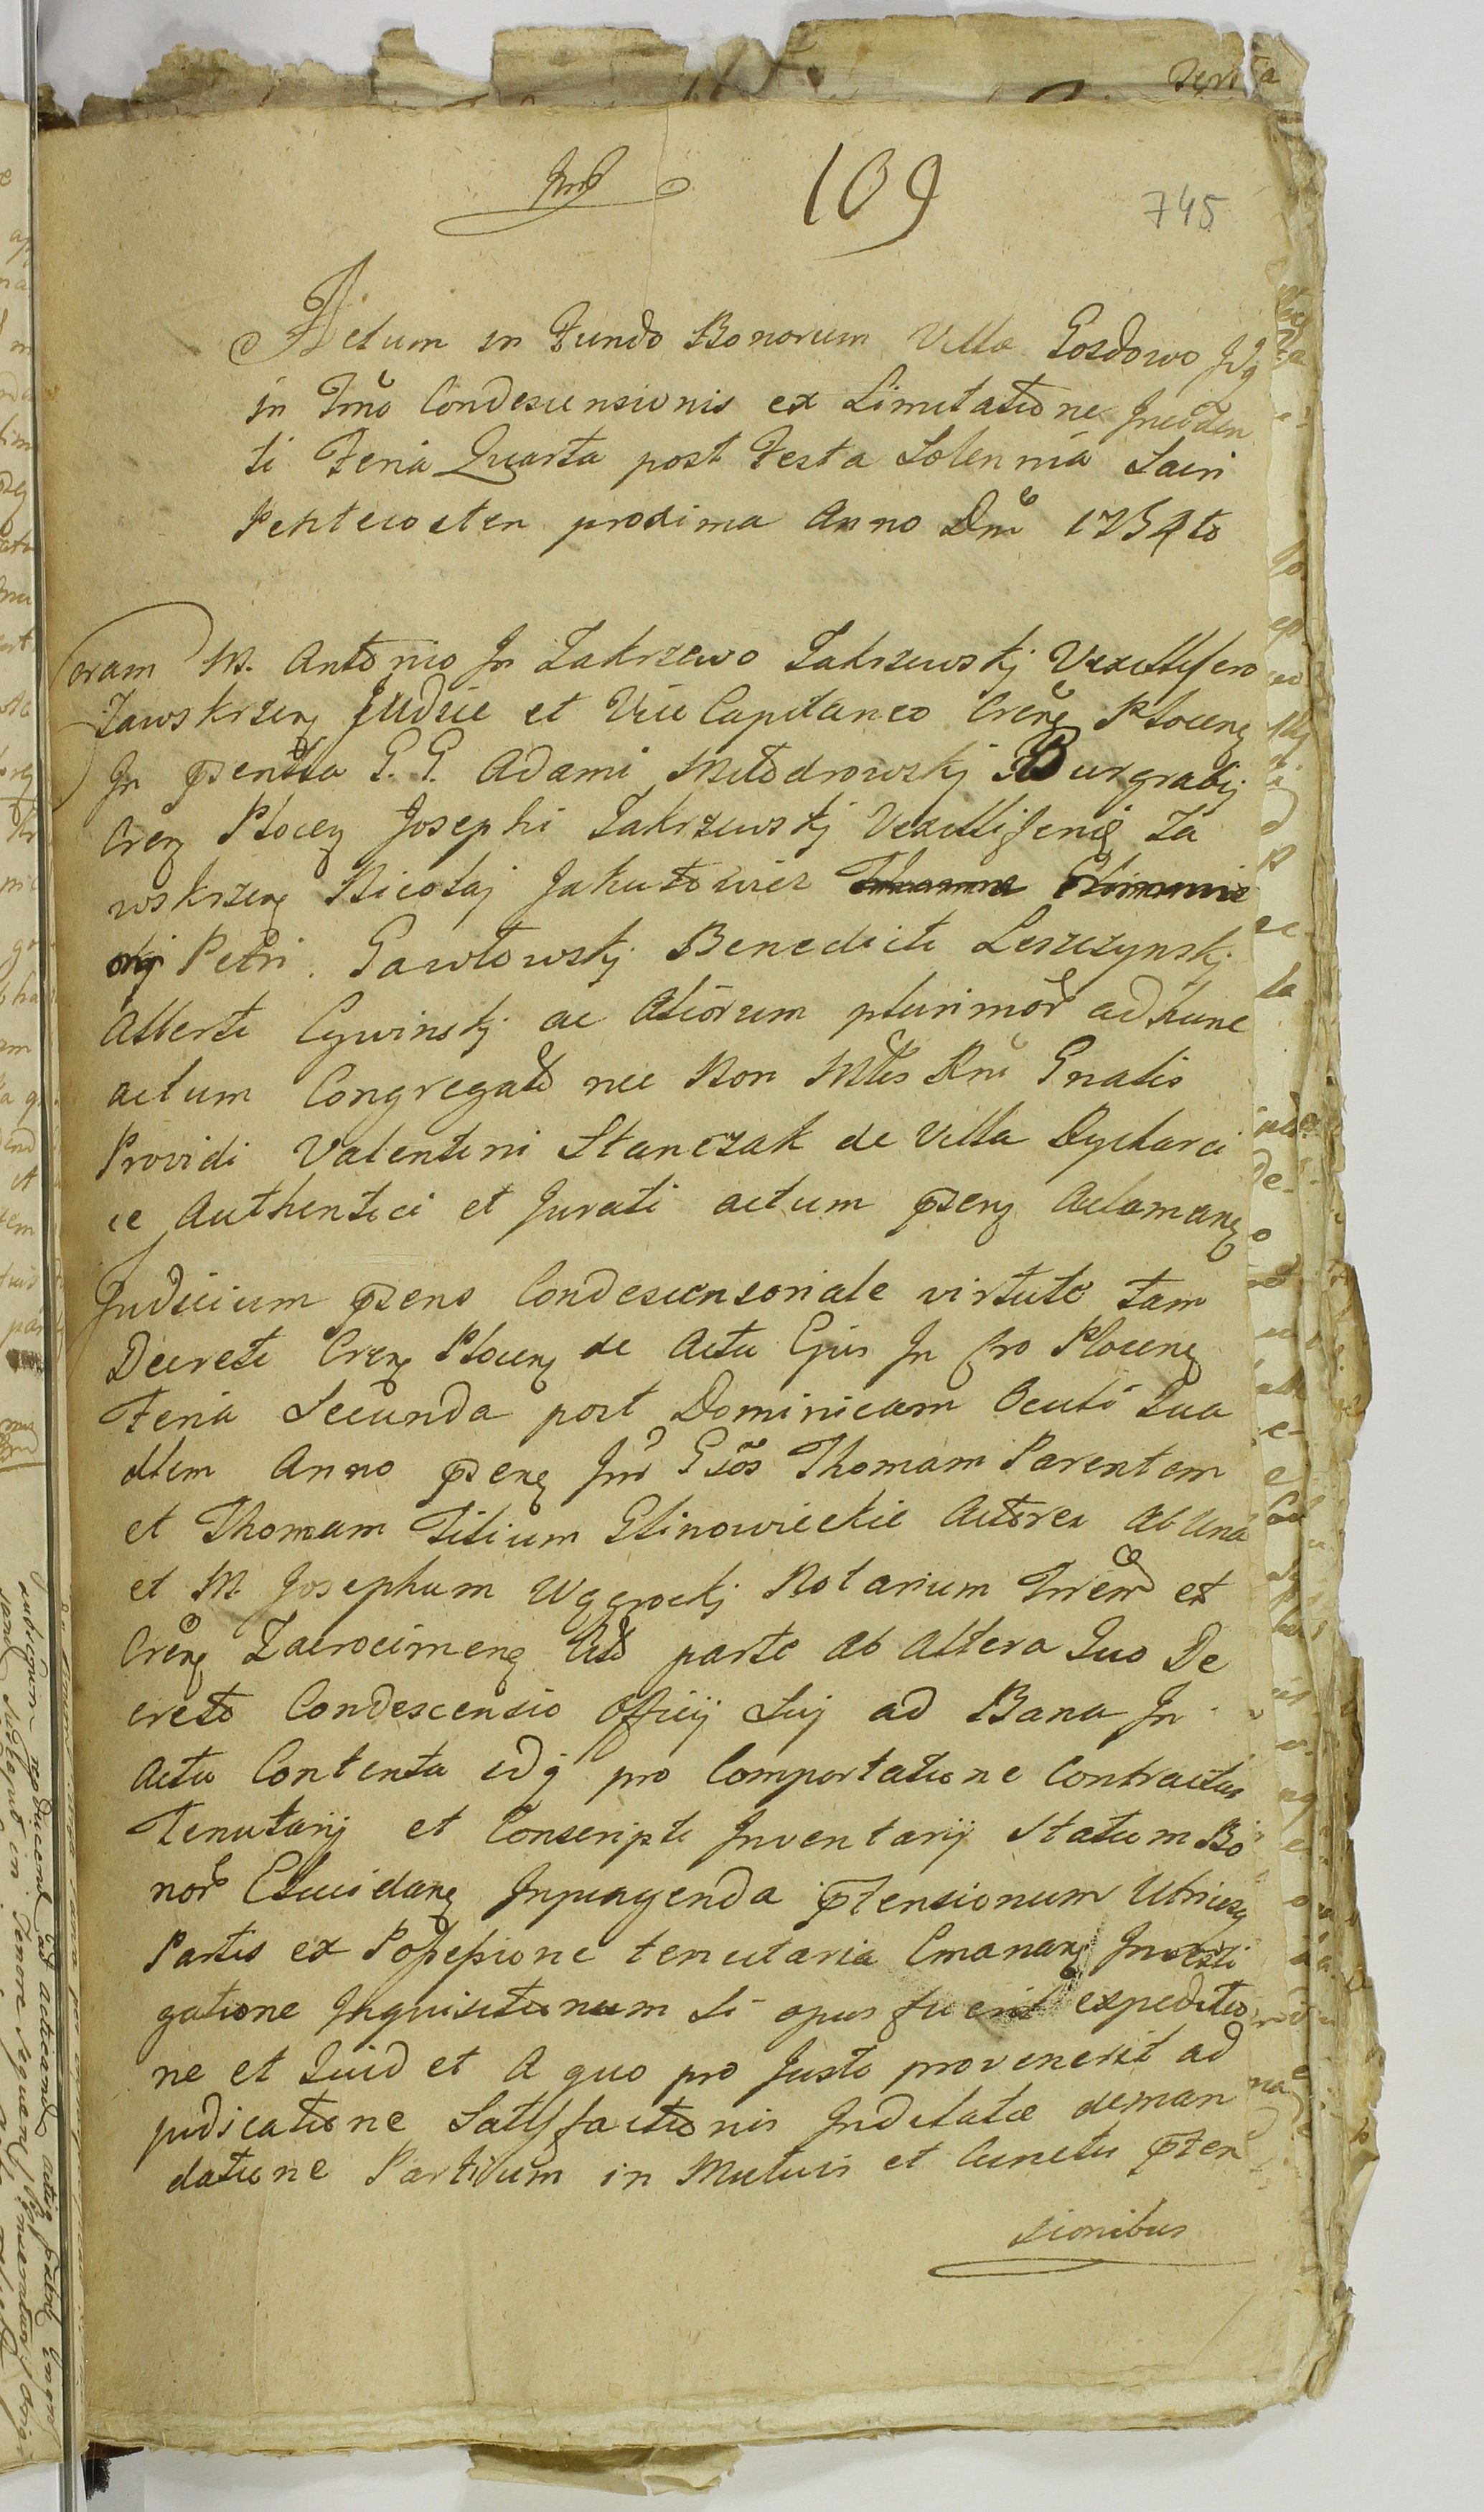 109
745
Actum in Fundo Bonorum Villæ Gozdowo Idq
in Tmo Condescensionis ex Limitatione Inciden
ti Feria Quarta post Festa Solennia Sacri
Pentecosten proxima Anno Dni 1754to
Coram M. Antonio In Zakrzewo Zakrzewskj Vexillifero
Zawskrzen Judice et Vice Capitaneo Cren Plocen
In psentia G. G. Adami Młodzowskj Burgrabij
Cren Plocen Josephi Zakrzewskj Vexilliferi Za
wskrzen Nicolaj Jakutowicz
Petri Gawłowskj Benedicti Leszczynskj
Alberti Cywinskj ac Aliorum plurimor ad hunc
actum Congregat nec Non Mtis Rni Gnalis
Providi Valentini Stanczak de Villa Dychawi
ce Authentici et Jurati actum psen Aclaman
Judicium psens Condescensoriale virtute tam
Decreti Cren Plocen de Actu Ejus In Cro Plocen
Feria Secunda post Dominicam Oculi Qua
dtem Anno psen Inr Gsos Thomam Parentem
et Thomam Filium Glinowieckie Actorea Ab Una
et M. Josephum Węgrockj Notarium Trren et
Cren Zacrocimen Citt parte ab altera Quo De
creto Condescensio Officij Sui ad Bona In
Actu Contenta idq pro Comportatione Contractus
Tenutarij et Conscripti Inventarij Statum Bo
nor Elucidan Inpungenda ptensionum Utriusq
Partis ex Possessione tenutaria Emanan Investi
gatione Inquisitionum Si opus fuerit expeditio
ne et Quid et A quo pro Justo provenerit ad
judicatione Satisfactionis Inditatæ deman
datione Partium in Mutuis et Cunctis pten
sionibus